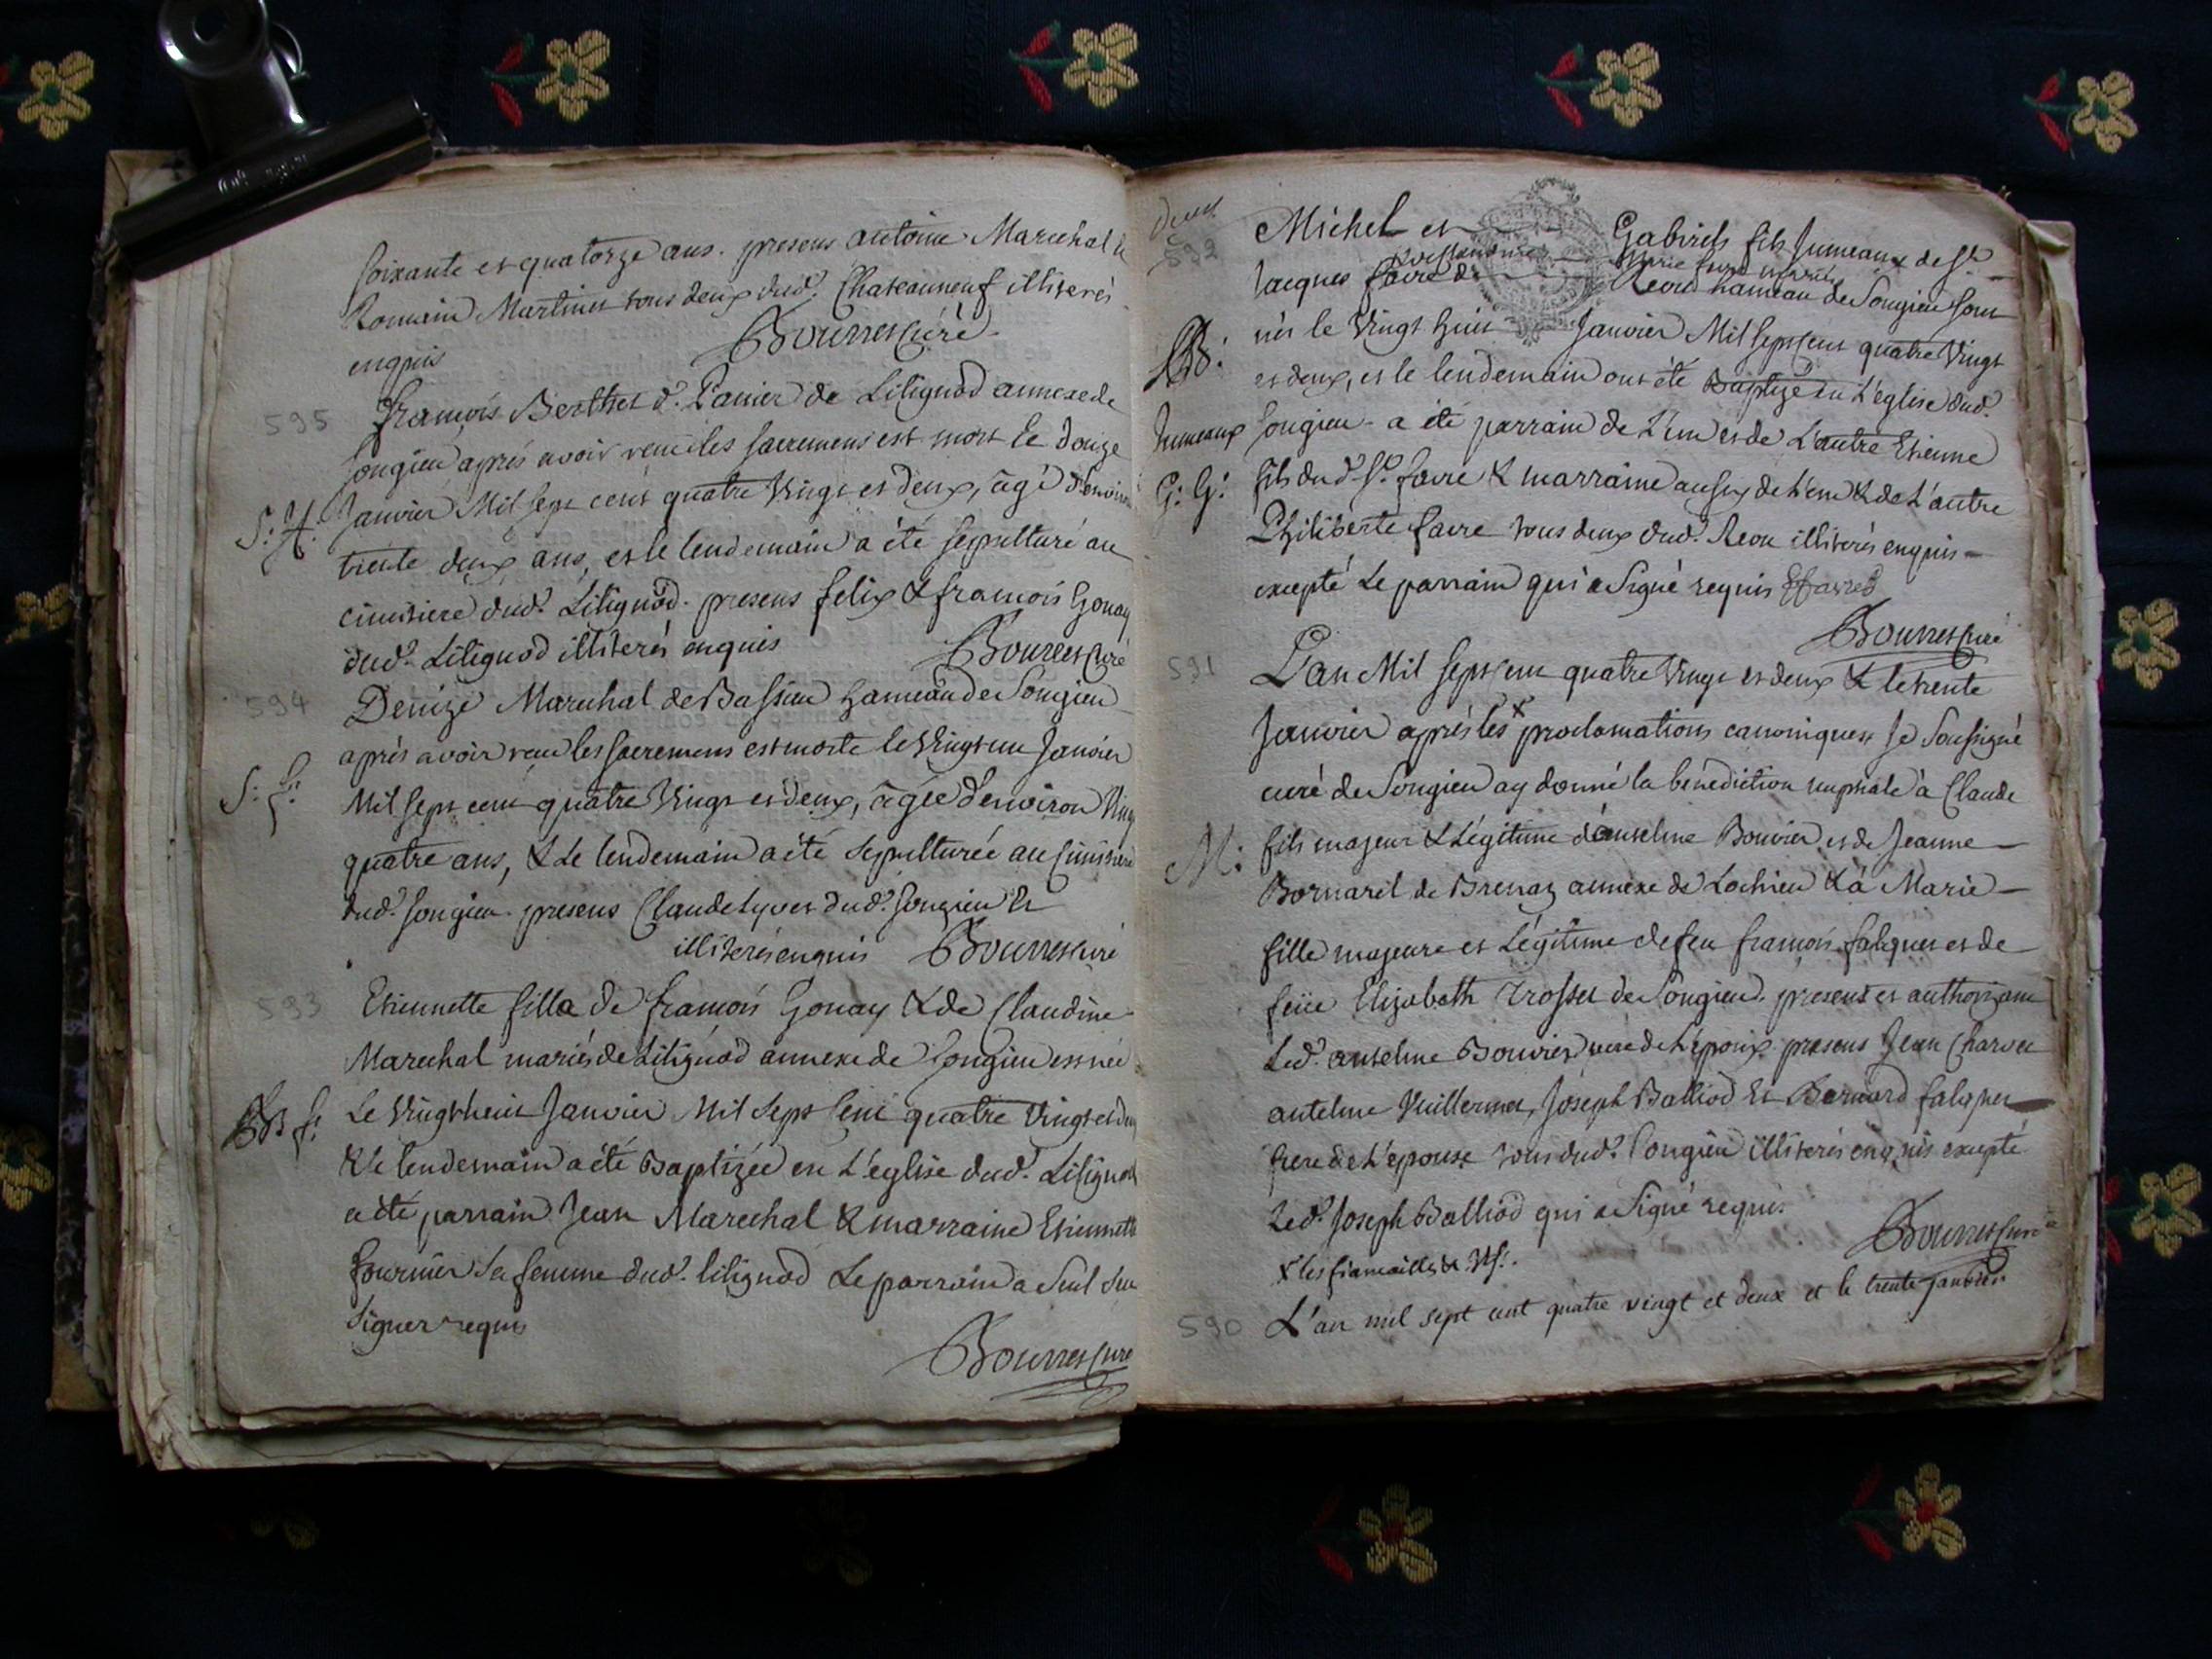 soixante et quatorze ans. presens antoine Marechal &
Romain Martinet tous deux dud. Chateauneuf illiterés
enquis
Bourret Curé
595
françois Berthet d. Panier de Lilignod annexe de
songieu après avoir reçu les sacremens est mort le douze
S: H:
Janvier Mil sept cent quatre vingt et deux, âgé d'environ
trente deux ans, et le lendemain a été sepulturé au
cimitiere dud. Lilignod. presens felix & françois Gonay
dud. Lilignod illiterés enquis
Bourret Curé
594
Denize Marechal de Bassieu hameau de Songieu
après avoir reçu les sacremens est morte le vingt un Janvier
S: f:
Mil sept cent quatre vingt et deux, âgée d'environ vingt
quatre ans, & le lendemain a été sepulturée au Cimitiere
dud. songieu. presens Claude lyvet dud. songieu &
illiterés enquis Bourret Curé
593
Etiennette fille de françois Gonay & de Claudine
Marechal mariés de Lilignod annexe de songieu est née
B f:
Le vingt huit Janvier Mil sept cent quatre vingt et deux
& le lendemain a été Baptizée en L'eglise dud. Lilignod
a été parrain Jean Marechal & marraine Etiennette
fournier sa femme dud. lilignod Le parrain a seul su
signer requis
Bourret Curé
deux
592
Michel et Gabriel fils Jumeaux de Sr
Marie mariés
Jacques favre de Reou hameau de Songieu sont
B:
nés le vingt huit Janvier Mil sept cent quatre vingt
et deux, et le lendemain ont été Baptizé en L'eglise dud.
Jumeaux
songieu - a été parrain de L'un et de L'autre Etienne
G: G:
fils du d. Sr. favre & marraine aussy de L'un & de L'autre
Philiberte favre tous deux dud. Reou illiterés enquis
excepté Le parrain qui a signé requis Efavre
Bourret Curé
591
L'an Mil sept cent quatre vingt et deux & le trente
Janvier après les x proclamations canoniques Je soussigné
curé de Songieu ay donné la bénédiction nuptiale à Claude
M:
fils majeur & Légitime d'anselme Bouvier et de Jeanne
Bornarel de Brenaz annexe de Lochieu & à Marie
fille majeure et Légitime de feu françois falquet et de
feüe Elizabeth Trosset de Songieu. present et authorizant
Led. anselme Bouvier pere de L'époux. presens Jean Charvet
antelme Vuillermet, Joseph Balliod Et Bernard falquet
frere de L'epouse tous dud. songieu illiterés enquis excepté
Led. Joseph Balliod qui a signé requis
Bourret Curé
x les fiançailles &
590
L'an mil sept cent quatre vingt et deux et le trente janvier